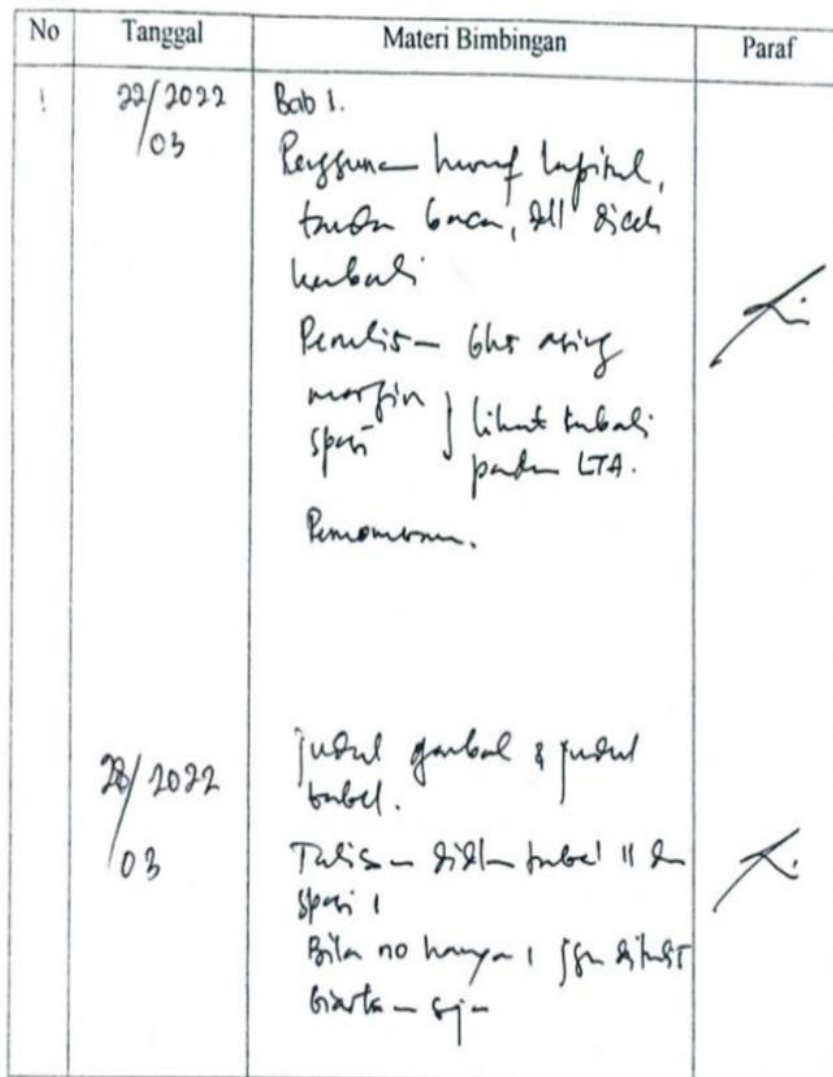 No Tanggal Materi Bimbingan Paraf
1 22/2022 Bab 1.
03
Penggunaan huruf kapital,
tanda baca, dll dicek
kembali
Penulisan bhs asing
margin
spasi } lihat kembali
pada LTA.
Penomoran.
28/2022 judul gambar & judul
tabel.
03 Tulisan didlm tabel 11 dn
spasi 1
Bila no hanya 1 jgn ditulis
biarkan saja